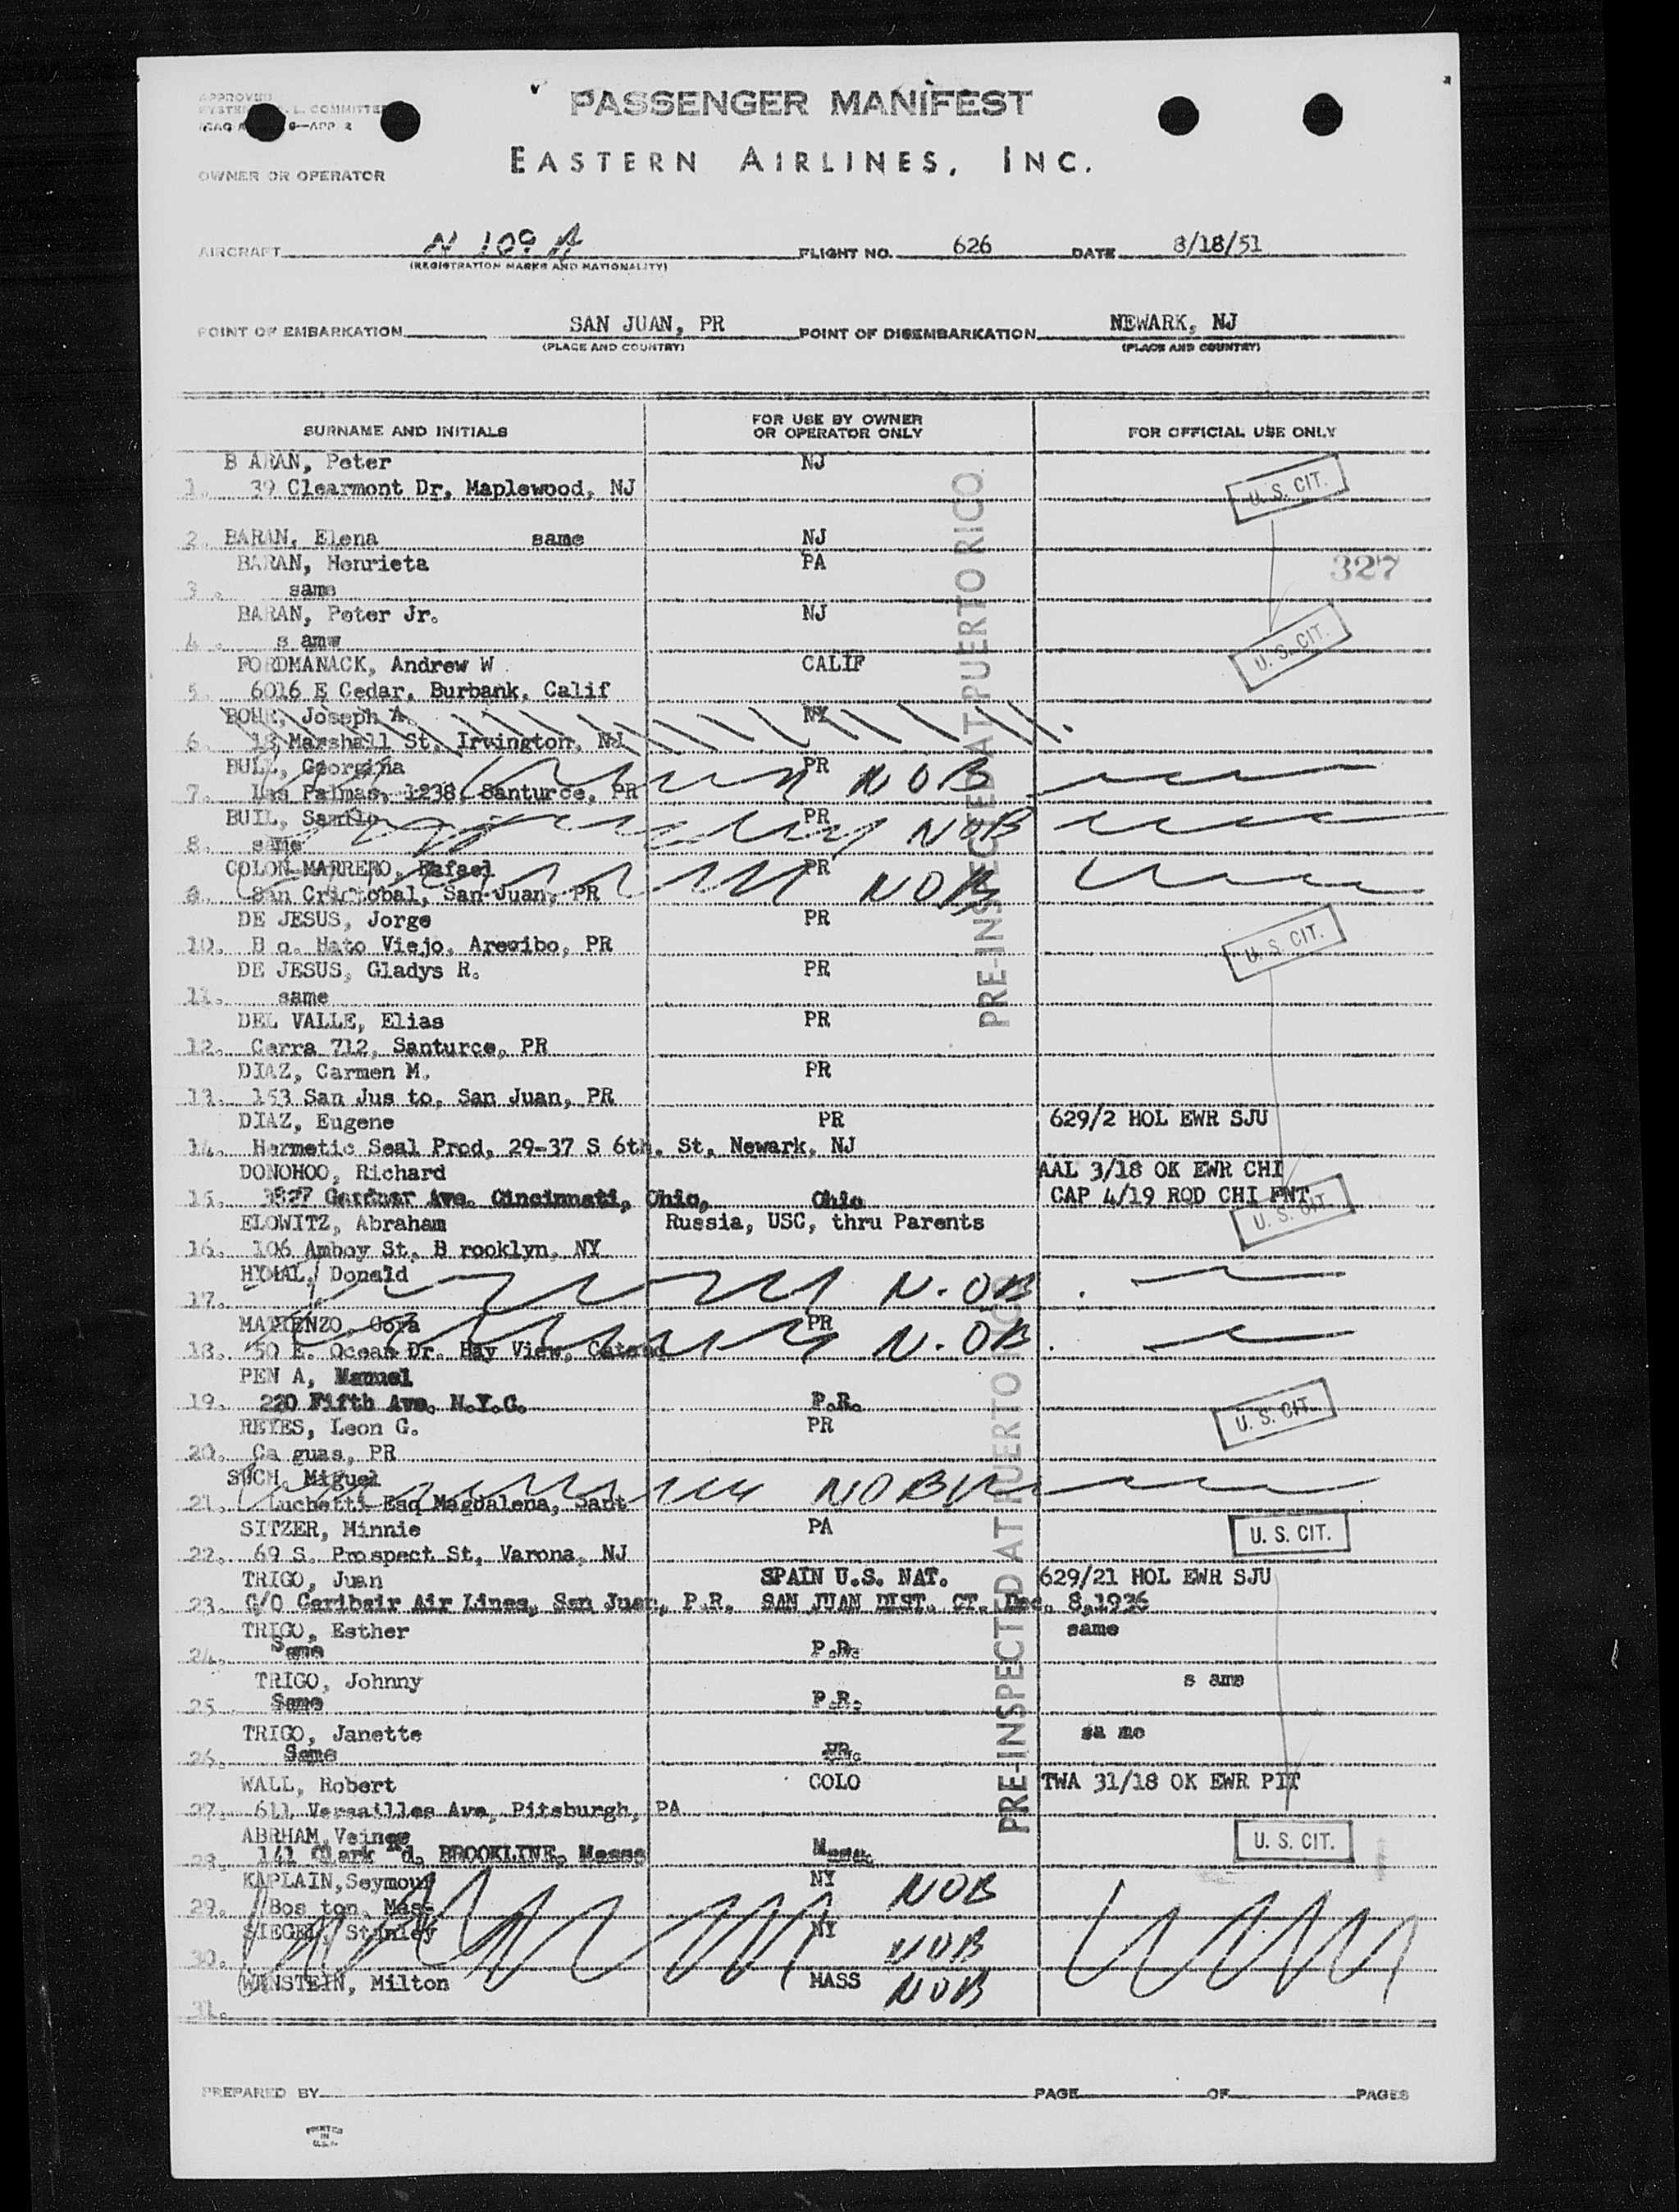 APPROVED
COMMITTEE
PASSENGER MANIFEST
EASTERN AIRLINES, INC.
OWNER OR OPERATOR
AIRCRAFT N 109 A FLIGHT NO. 626 DATE 8/18/51
(REGISTRATION MARKS AND NATIONALITY)
POINT OF EMBARKATION SAN JUAN, PR POINT OF DISEMBARKATION NEWARK, NJ
(PLACE AND COUNTRY) (PLACE AND COUNTRY)
SURNAME AND INITIALS FOR USE BY OWNER OR OPERATOR ONLY FOR OFFICIAL USE ONLY
B ARAN, Peter NJ
1. 39 Clearmont Dr. Maplewood, NJ U. S. CIT.
2. BARAN, Elena same NJ
BARAN, Henrieta PA 327
3. same
BARAN, Peter Jr. NJ
4. s amw U. S. CIT.
FORDMANACK, Andrew W CALIF
5. 6016 E Cedar, Burbank, Calif
Joseph A. NY
6. 18 Marshall St, Irvington, NJ
BULL, Georgina PR NOB
7. Las Palmas, 1238, Santurce, PR
BUIL, PR NOB
8. same
COLON MARRERO, Rafael PR NOB
9. San Cristobal, San Juan, PR
DE JESUS, Jorge PR
10. B o. Hato Viejo, Arecibo, PR U. S. CIT.
DE JESUS, Gladys R. PR
11. same
DEL VALLE, Elias PR
12. Cerra 712, Santurce, PR
DIAZ, Carmen M. PR
13. 153 San Jus to, San Juan, PR
DIAZ, Eugene PR 629/2 HOL EWR SJU
14. Hermetic Seal Prod, 29-37 S 6th. St, Newark, NJ
DONOHOO, Richard AAL 3/18 OK EWR CHI
15. 3827 Gardner Ave. Cincinnati, Ohio, Ohio CAP 4/19 RQD CHI FNT
ELOWITZ, Abraham Russia, USC, thru Parents U. S. CIT.
16. 106 Amboy St, B rooklyn, NY
Donald N.OB
17.
MATIENZO, Cora PR N.OB
18. 50 E. Ocean Dr. Bay View,
PEN A, Manuel
19. 220 Fifth Ave. N.Y.C. P.R.
REYES, Leon G. PR U. S. CIT.
20. Ca guas, PR
SUCH, Miguel NOB
21. Luchetti Esq Magdalena, Sant
SITZER, Minnie PA U. S. CIT.
22. 69 S. Prospect St, Varona, NJ
TRIGO, Juan SPAIN U.S. NAT. 629/21 HOL EWR SJU
23. C/O Caribair Air Lines, San Juan, P.R. SAN JUAN DIST. CT. Dec. 8,1936
TRIGO, Esther same
24. Same P.R.
TRIGO, Johnny s ame
25. Same P.R.
TRIGO, Janette sa me
26. Same PR.
WALL, Robert COLO TWA 31/18 OK EWR PIT
27. 611 Versailles Ave, Pitsburgh, PA
ABRHAM, U. S. CIT.
28. 141 Clark Rd. BROOKLINE, Masss Mass.
KAPLAIN,Seymour NY NOB
29. Bos ton, Mass
SIEGEL, Stanley NY NOB
30.
WANSTEIN, Milton MASS NOB
31.
PRE-INSPECTED AT PUERTO RICO
PRE-INSPECTED AT PUERTO RICO
PREPARED BY PAGE OF PAGES
PRINTED
IN
U.S.A.